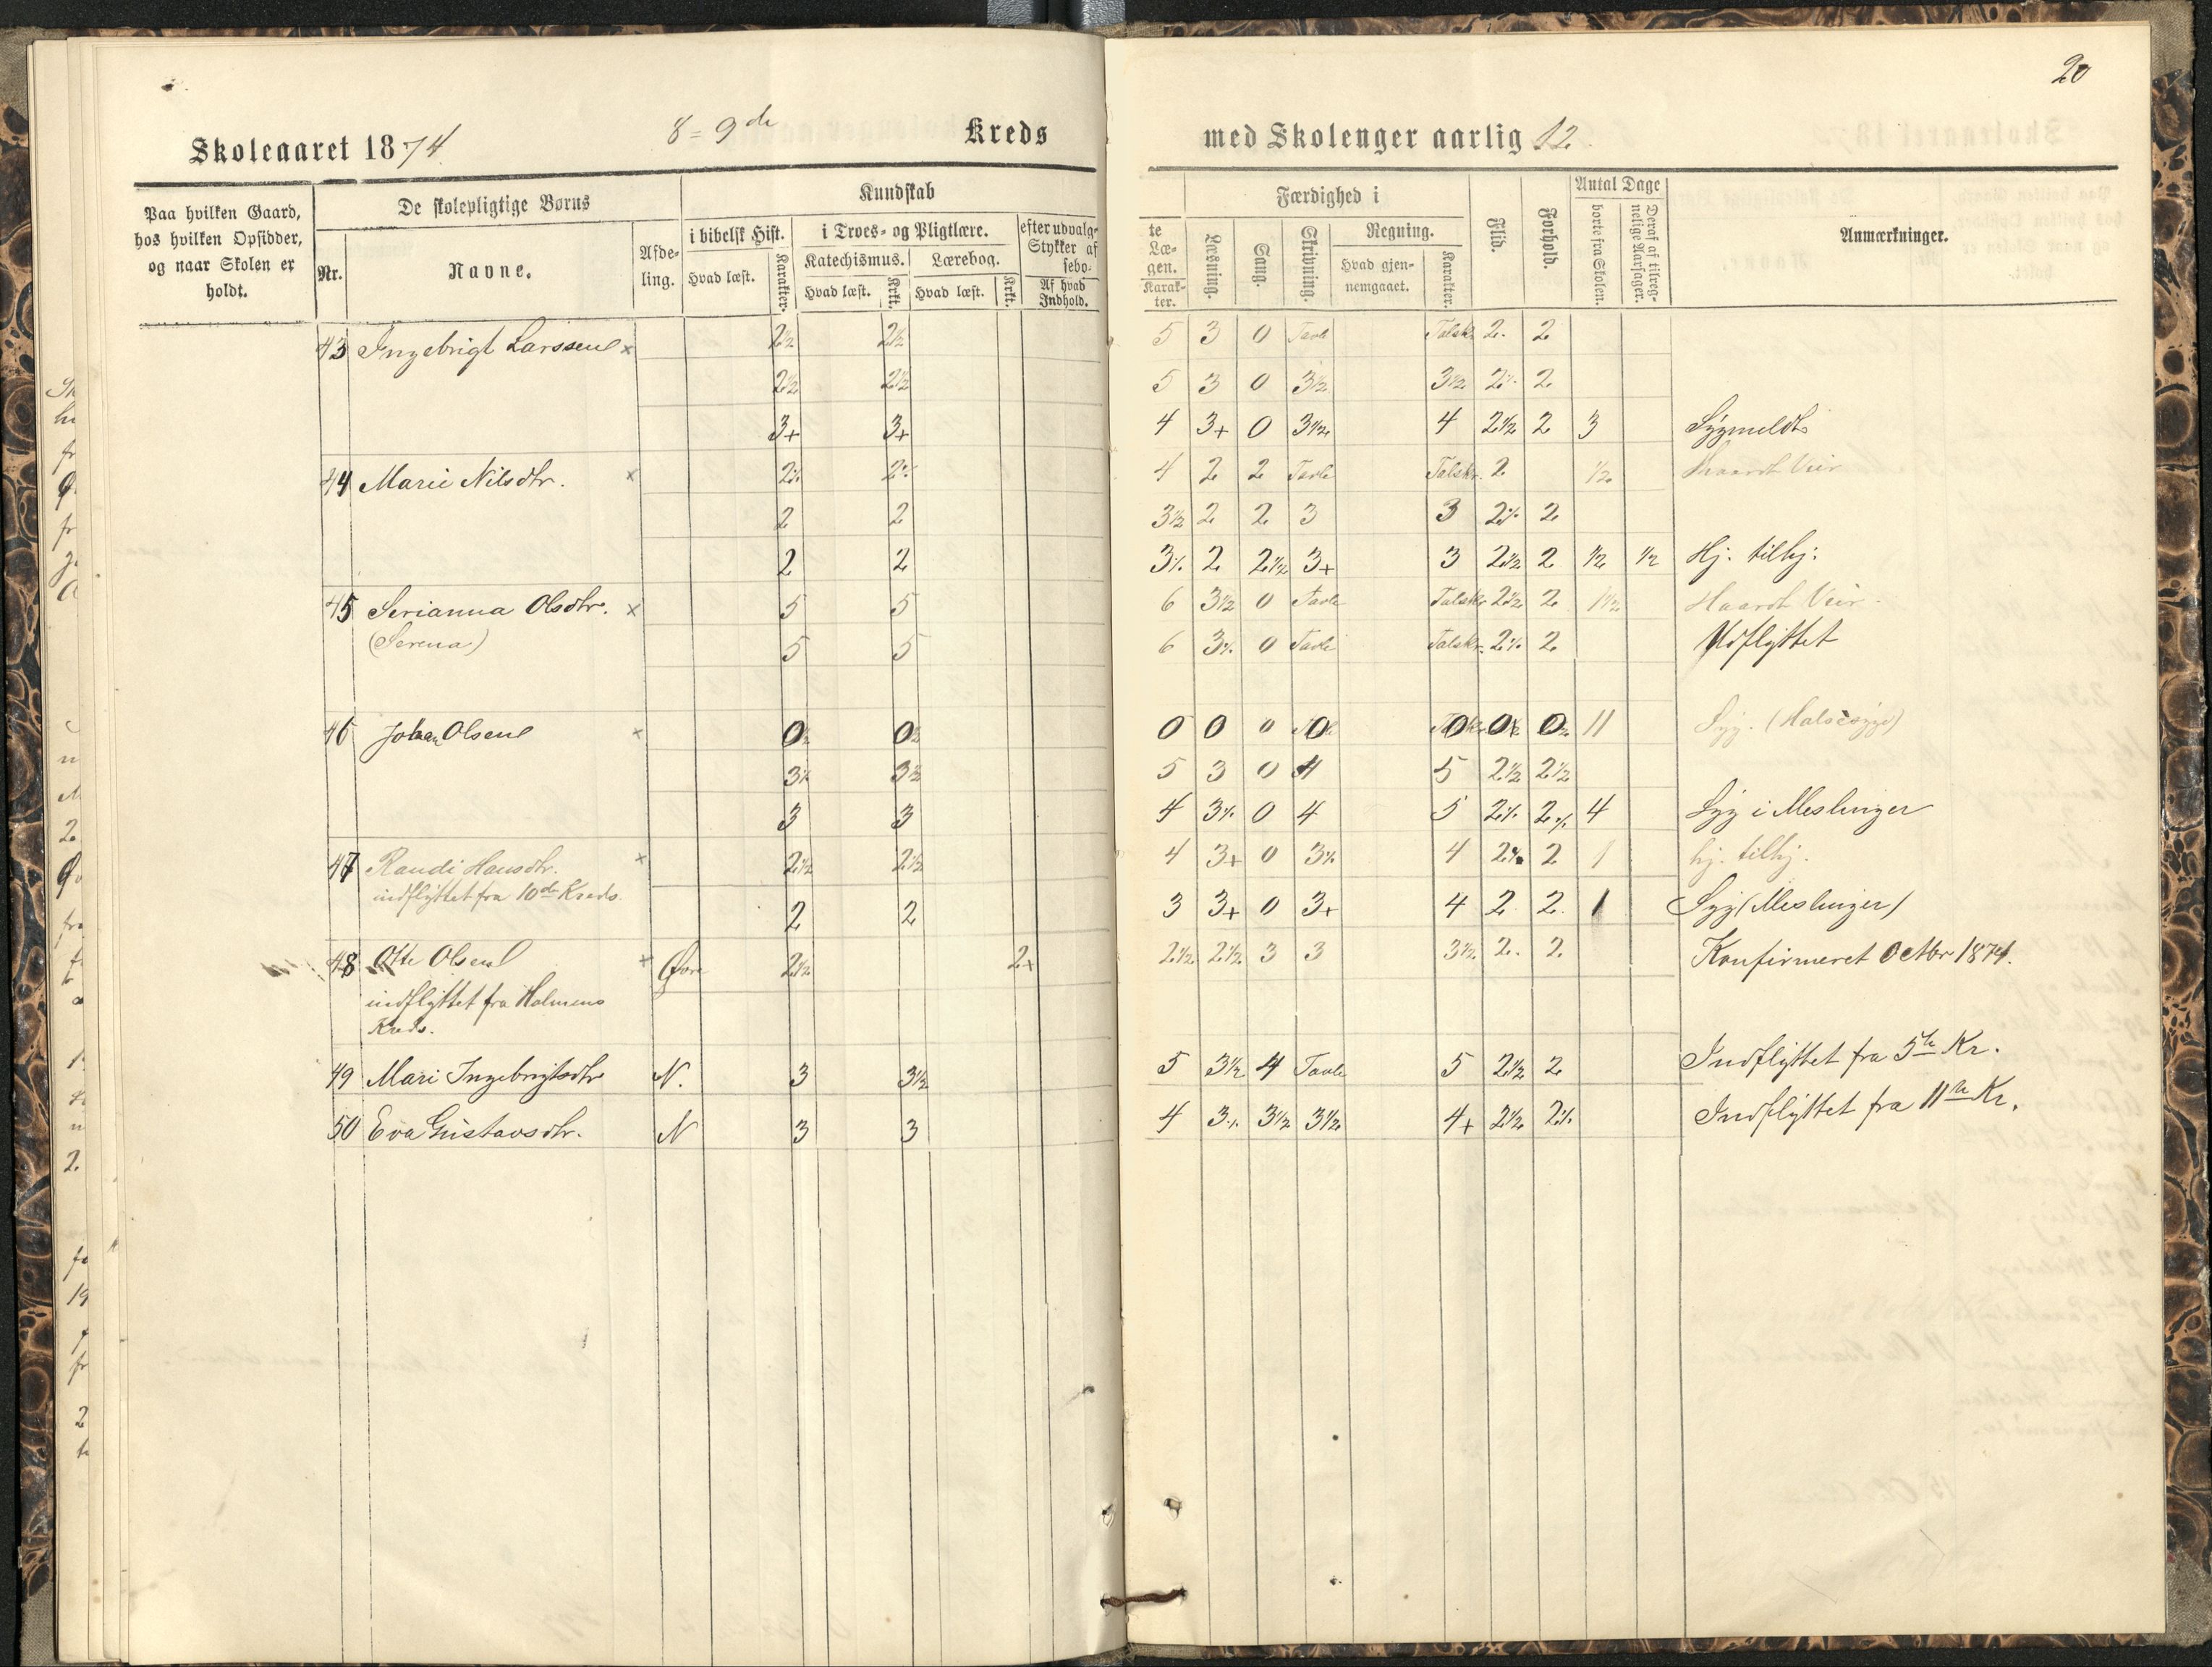 20
Skoleaaret 1874. 8=9de Kreds med Skolenger aarlig 12.
Paa hvilken Gaard, hos hvilken Opsidder, og naar Skolen er holdt.
De skolepligtige Børns
Nr. Navne. Afdeling.
Kundskab
i bibelsk Hist. Hvad læst. Karakter.
i Troes- og Pligtlære.
Katechismus. Hvad læst. Krkt.
Lærebog. Hvad læst. Krkt.
efter udvalg- Stykker af sebo- Af hvad Indhold.
te Læ- gen. Karak- ter.
Færdighed i
Læsning. Sang. Skrivning.
Regning. Hvad gjen- nemgaaet. Karakter.
Flid. Forhold.
Antal Dage
borte fra Skolen. Deraf af tilreg- nelige Aarsager.
Anmærkninger.
43 Ingebrigt Larssen x 2½ 2½ 5 3 0 Tavle Talskr. 2. 2
2½ 2½ 5 3 0 3½ 3½ 2% 2
3+ 3+ 4 3+ 0 3½ 4 2½ 2 3 Sygmeldt
44 Marie Nilsdtr. x 2% 2% 4 2 2 Tavle Talskr. 2 ½ Haardt Veir
2 2 3½ 2 2 3 3 2% 2
2 2 3% 2 2½ 3+ 3 2½ 2 ½ ½ Hj. tilhj:
45 Serianna Olsdtr. x 5 5 6 3½ 0 Tavle Talskr 2½ 2 1½ Haardt Veir
(Serena) 5 5 6 3% 0 Tavle Talskr. 2% 2 Udflyttet
46 Johan Olsen x 0 0 0 0 0 0 0 0 0 11 Syg. (Halssyge)
3% 3½ 5 3 0 4 5 2½ 2½
3 3 4 3% 0 4 5 2% 2% 4 Syg i Meslinger
47 Randi Hansdtr. x 2½ 2½ 4 3+ 0 3½ 4 2% 2 1 hj. tilhj.
indflyttet fra 10de Kreds. 2 2 3 3+ 0 3+ 4 2 2 1 Syg (Meslinger)
48 Otte Olsen x Øvre 2½ 2+ 2½ 2½ 3 3 3½ 2. 2. Konfirmeret Octbr 1874.
indflyttet fra Holmens
Kreds.
49 Mari Ingebrigtsdtr N. 3 3½ 5 3½ 4 Tavle 5 2½ 2 Indflyttet fra 5te Kr.
50 Eva Gustavsdtr. N 3 3 4 3% 3½ 3½ 4+ 2½ 2% Indflyttet fra 11te Kr.